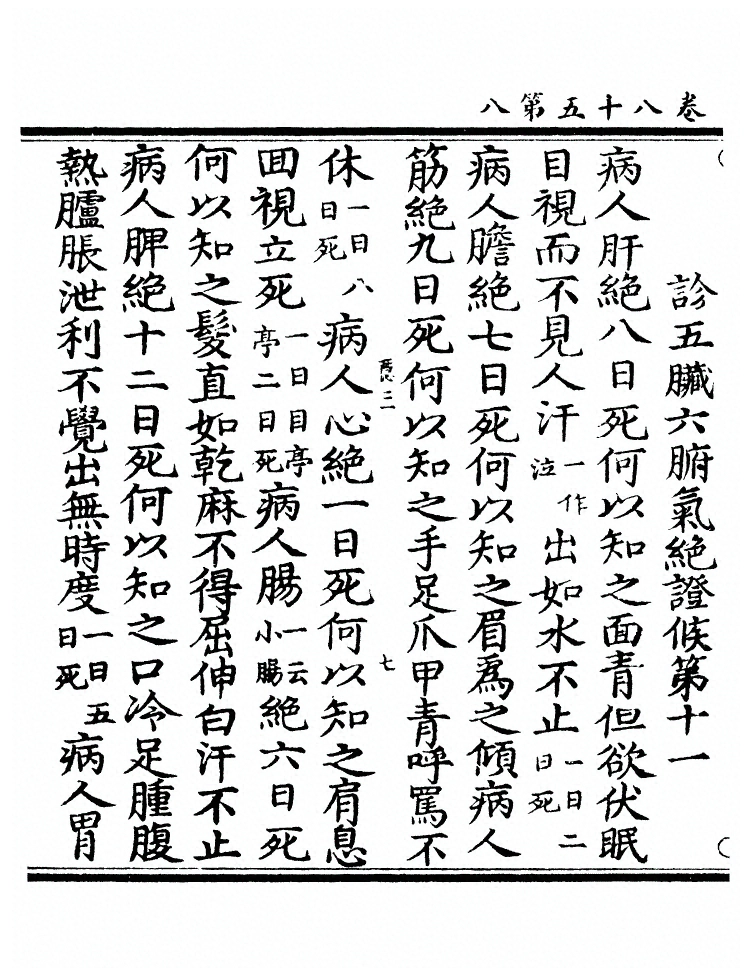 卷八十五第八
診五臟六腑氣絕證候第十一
病人肝絕八日死何以知之面青但欲伏眠
目視而不見人汗一作泣出如水不止一日二日死
病人膽絕七日死何以知之眉爲之傾病人
筋絕九日死何以知之手足爪甲青呼罵不
七
休一日八日死病人心絕一日死何以知之肩息
回視立死一日目亭亭二日死病人腸一云小腸絕六日死
何以知之髮直如乾麻不得屈伸白汗不止
病人脾絕十二日死何以知之口冷足腫腹
熱臚脹泄利不覺出無時度一日五日死病人胃